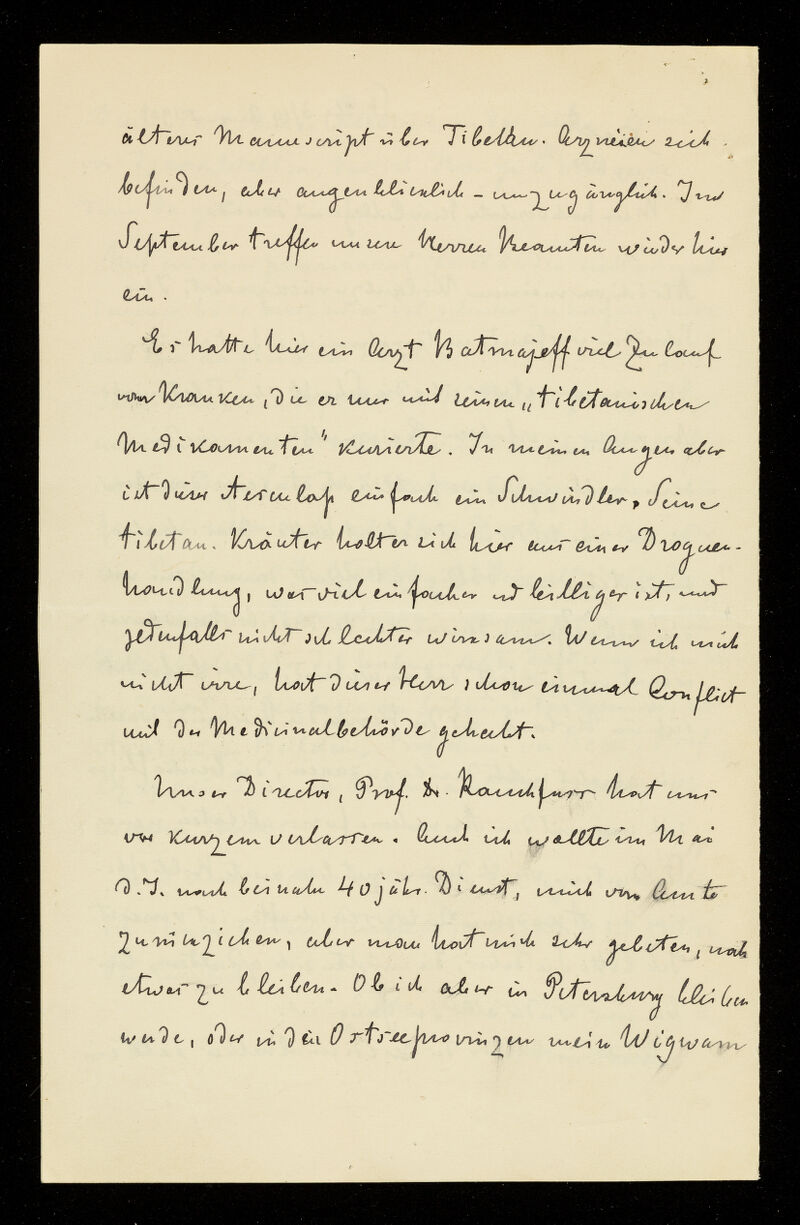 älteres Manuscript über Tibetan. Arzneien sich
befinden, aber augenblicklich - unzugänglich. Im
September treffen unsere Herren Beamten wieder hier
ein.
Es hatte hier ein Arzt Batmajeff viel Zulauf
von Kranken, die er nur mit seinen „tibetanischen
Medikamenten" kurierte. In meinen Augen aber
ist dieser Aesculap einfach ein Schwindler. Seine
tibetan. Kräuter holt er sich hier aus einer Droguen-
handlung, was viel einfacher ud billiger ist, und
jedenfalls nicht schlechter wirksam. Wenn ich mich
nicht irre, hat dieser Herr schon einmal Conflict
mit der Medicinalbehörde gehabt.
Unser Director, Prof. Dr. Rauchfuss hat uns
vor kurzem verlassen. Auch ich wollte im Mai
d. J. nach beinahe 40 jähr. Dienst, mich vom Amte
zurückziehen, aber man hat mich sehr gebeten, noch
etwas zu bleiben. Ob ich aber in Petersburg bleiben
werde, oder in den Ostseeprovinzen mein Wigwam